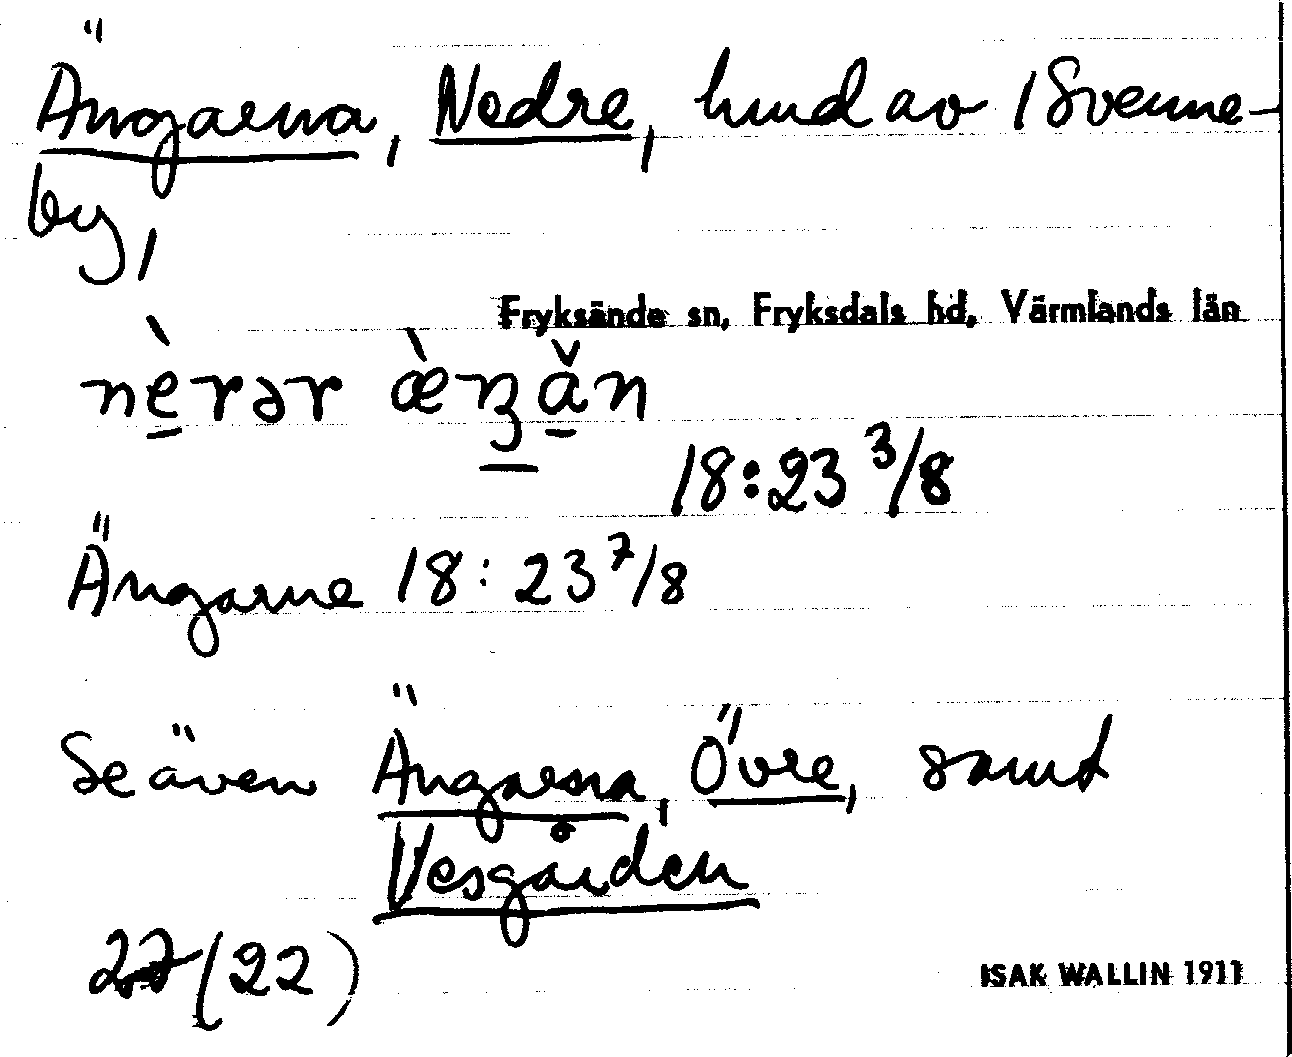 Ängarna, Nedre, hmd av 1 Svenne-
by,
Fryksände sn, Fryksdals hd, Värmlands län
nèrər æ̀ŋǎn
18:23 3/8
Ängarne 18:23 7/8
Se även Ängarna, Övre, samt
Vesgården
(22)
ISAK WALLIN 1911